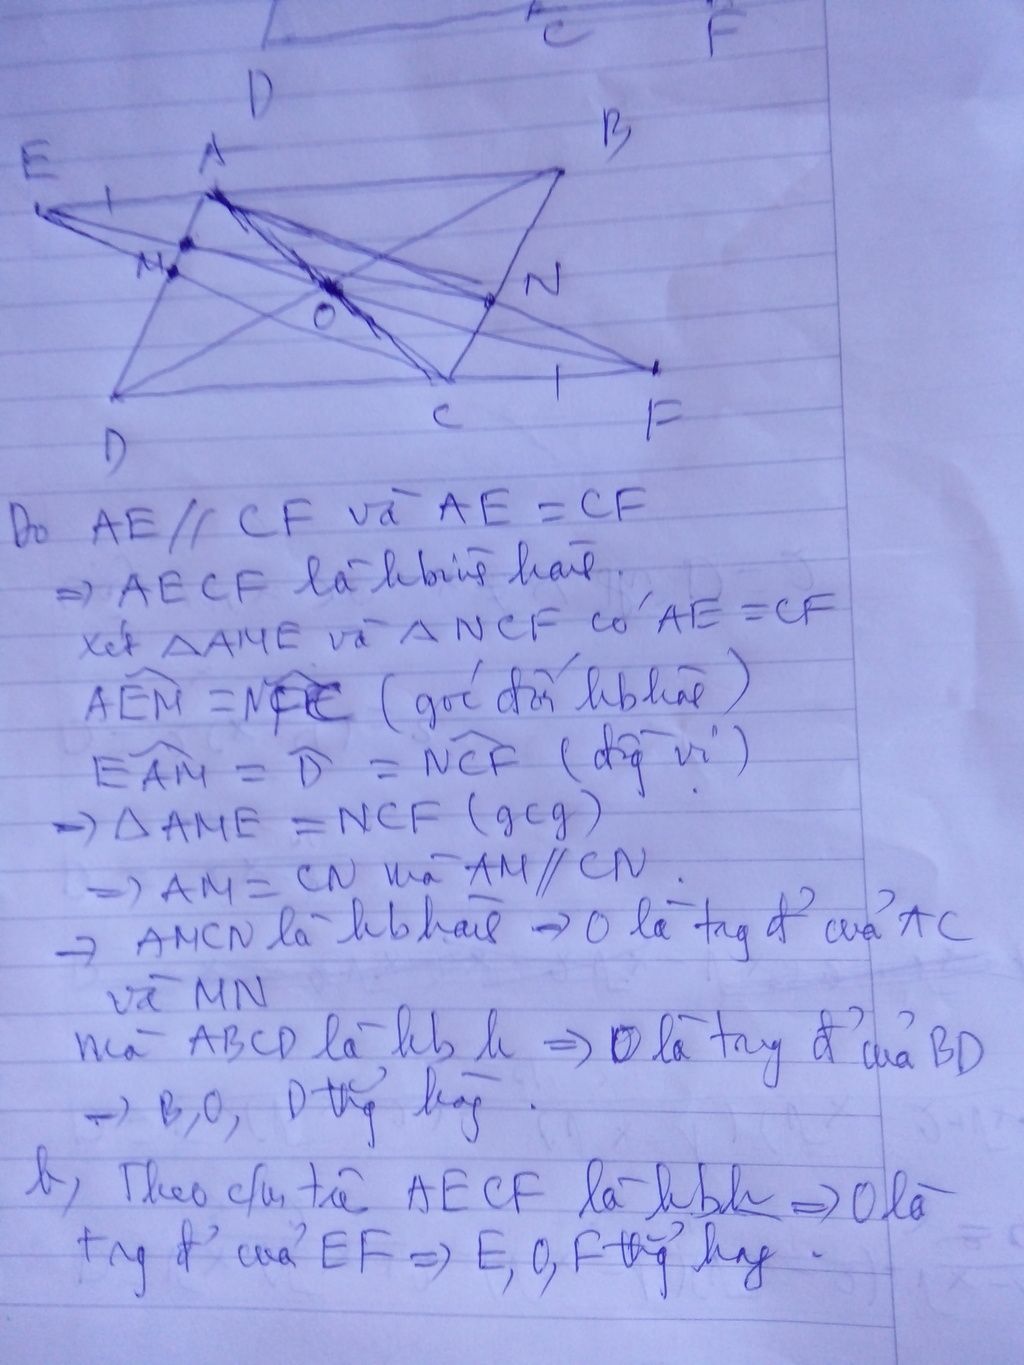 C F
D
E A B
M N
O
D C F
Do AE // CF và AE = CF
=> AECF là hbình hành.
xét △AME và △NCF có AE = CF
AEM = NFC (góc đối hbhành)
EAM = D = NCF (đồng vị)
=> △AME = NCF (gcg)
=> AM = CN mà AM // CN.
=> AMCN là hbhành => O là trg đ' của AC
và MN
mà ABCD là hbh => O là trng đ' của BD
=> B, O, D thg hàng.
b, Theo c/m trên AECF là hbh => O là
trg đ' của EF => E, O, F thg hng.